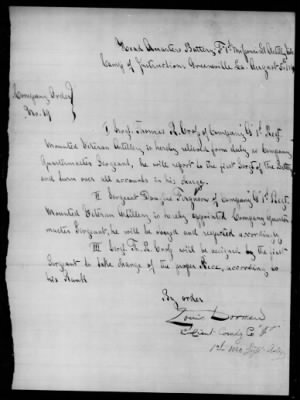 Head Quarters Battery "F" 1st Missouri Lt Artlly
Camp of Instruction Greenville La. August 5th
Company Order
No. 19
I Sergt. Thomas R. Cox of Company "F" 1st Regt
Mounted Veteran Artillery is hereby relieved from duty as Company
Quartermaster Sergeant, he will report to the first Sergt of the Battery
and turn over all accounts in his charge.
II Sergeant Ferguson of Company "F" 1st Regt.
Mounted Veteran Artillery is hereby appointed Company Quarter
master Sergeant, he will be obeyed and respected accordingly
III Sergt. Th. R. Cox will be assigned by the first
Sergeant to take charge of the proper Piece, according to
his Rank
By order
Louis
Lieut. Comdg Co "F"
1st Mo. Artly